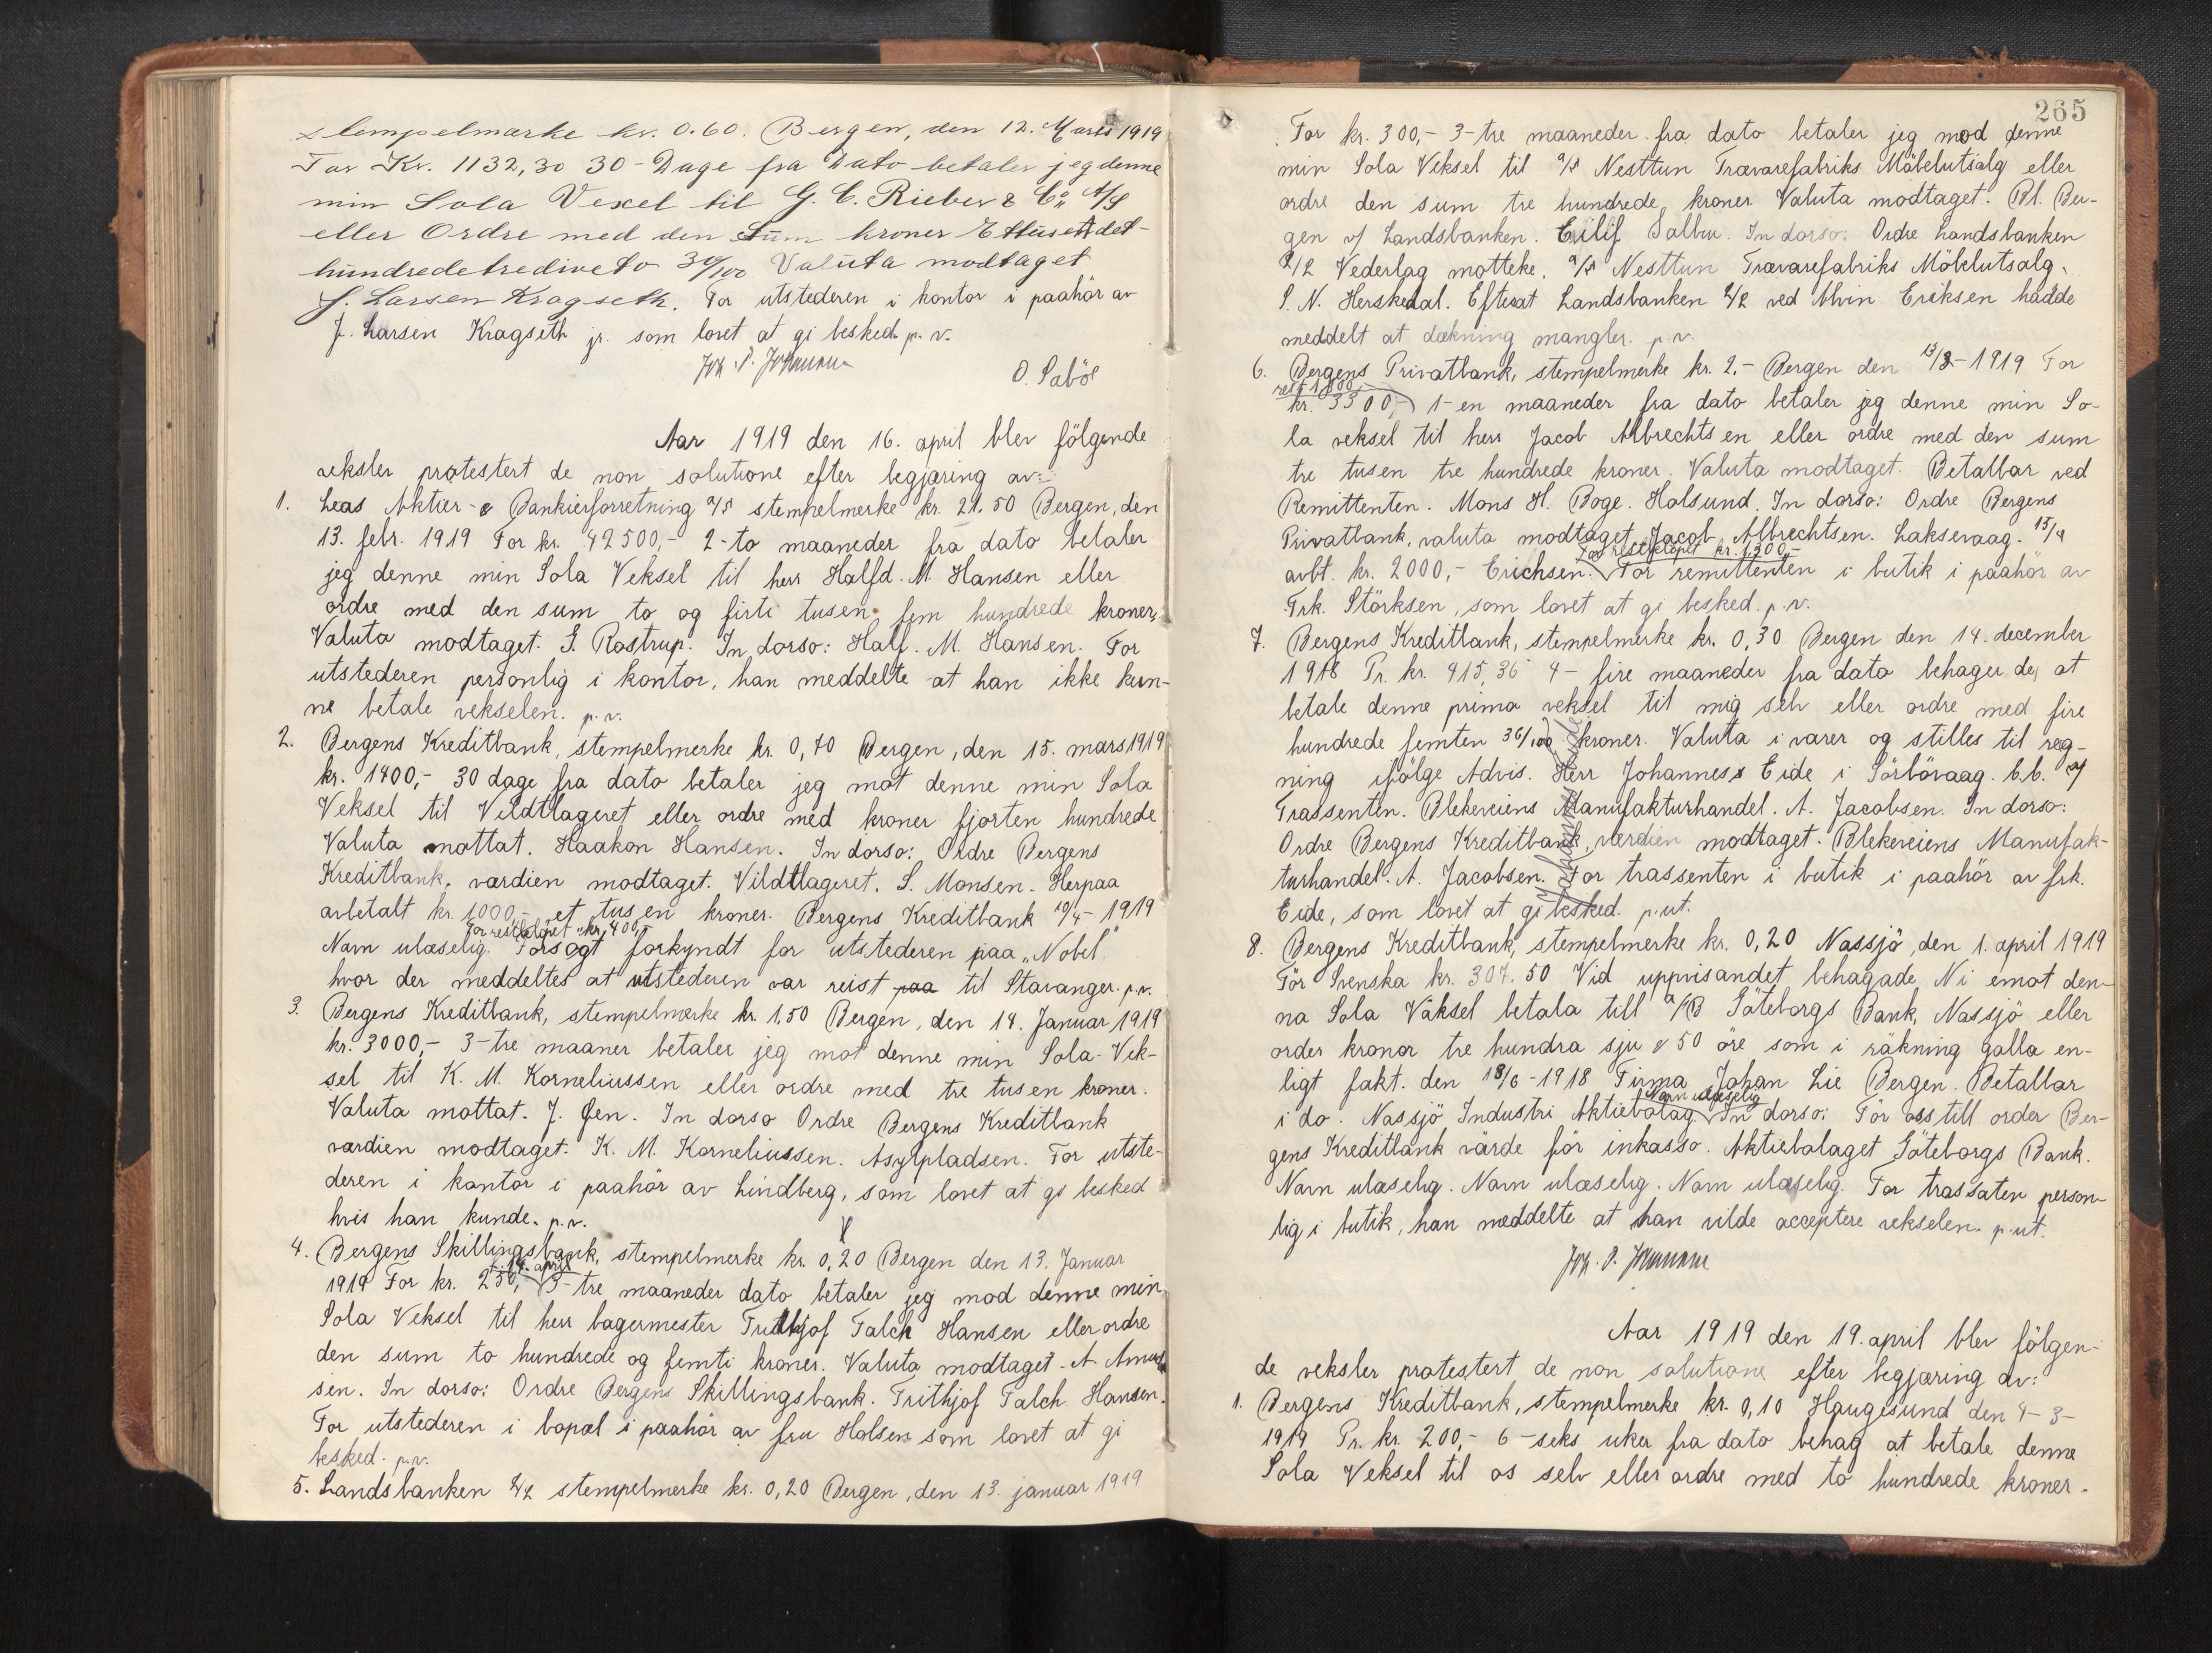 stempelmarke kr. 0.60. Bergen, den 12. Marts 1919
For Kr. 1132,30 30-Dage fra Dato betaler jeg denne
min Sola Vexel til G. C. Rieber & Co A/S
eller Ordre med den Sum kroner Ettusetdet-
hundredetrediveto 30/100 Valuta modtaget
J. Larsen Kragseth. For utstederen i kontor i paahör av
J. Larsen Kragseth jr. som lovet at gi besked. p.v.
O. Saböe
Aar 1919 den 16. april blev fölgende
veksler protestert de non solutione efter begjæring av:
1. Leas Aktier- & Bankierforretning a/s stempelmerke kr. 21.50 Bergen, den
13. febr. 1919 For kr. 42500,- 2-to maaneder fra dato betaler
jeg denne min Sola Veksel til herr Halfd. M. Hansen eller
ordre med den sum to og firti tusen fem hundrede kroner,
Valuta modtaget. G. Rostrup. In dorso: Half. M. Hansen. For
utstederen personlig i kontor, han meddelte at han ikke kun-
ne betale vekselen. p.v.
2. Bergens Kreditbank, stempelmerke kr. 0,70 Bergen, den 15. mars 1919
kr. 1400,- 30 dage fra dato betaler jeg mot denne min Sola
Veksel til Vildtlageret eller ordre med kroner fjorten hundrede
Valuta mottat. Haakon Hansen. In dorso: Ordre Bergens
Kreditbank, værdien modtaget. Vildtlageret. S. Monsen. Herpaa
avbetalt kr. 1000,- et tusen kroner. Bergens Kreditbank 10/4-1919
for restbelöpet kr. 400,-
Navn ulæselig. Forsögt forkyndt for utstederen paa "Nobel"
hvor der meddeltes at utstederen var reist paa til Stavanger. p.v.
3. Bergens Kreditbank, stempelmerke kr. 1,50 Bergen, den 14. Januar 1919
kr. 3000,- 3-tre maaner betaler jeg mot denne min Sola-Vek-
sel til K. M. Korneliussen eller ordre med tre tusen kroner.
Valuta mottat. J. Gen. In dorso Ordre Bergens Kreditbank
værdien modtaget. K. M. Korneliussen. Asylpladsen. For utste-
deren i kontor i paahör av Lindberg, som lovet at gi besked
hvis han kunde. p.v.
4. Bergens Skillingsbank, stempelmerke kr. 0,20 Bergen den 13. Januar
14. april
1919 For kr. 250,- 3-tre maaneder dato betaler jeg mod denne min
Sola Veksel til herr bagermester Frithjof Falch Hansen eller ordre
den sum to hundrede og femti kroner. Valuta modtaget. A. Amund
sen. In dorso: Ordre Bergens Skillingsbank. Frithjof Falch Hansen.
For utstederen i bopæl i paahör av fru Holsen som lovet at gi
besked. p.v.
5. Landsbanken A/L stempelmerke kr. 0,20 Bergen, den 13. januar 1919
265
For kr. 300,- 3-tre maaneder fra dato betaler jeg mod denne
min Sola Veksel til a/s Nesttun Trævarefabriks Möbelutsalg eller
ordre den sum tre hundrede kroner Valuta modtaget. Bl. Ber-
gen v/ Landsbanken. Eilif Salbu. In dorso: Ordre Landsbanken
A/L Vederlag motteke. a/s Nesttun Trævarefabriks Möbelutsalg.
S. N. Herskedal. Efterat Landsbanken A/L ved Alvin Eriksen hadde
meddelt at dækning mangler. p.v.
6. Bergens Privatbank, stempelmerke kr. 2,- Bergen den 13/3-1919 For
rest 1300,-
kr. 3300,- 1-en maaneder fra dato betaler jeg denne min So-
la veksel til herr Jacob Albrechtsen eller ordre med den sum
tre tusen tre hundrede kroner. Valuta modtaget. Betalbar ved
Remittenten. Mons H. Boge. Holsund. In dorso: Ordre Bergens
Privatbank, valuta modtaget Jacob Albrechtsen. Laksevaag. 15/4
for restbelöpet kr. 1300,-
avbt. kr. 2000,- Erichsen. For remittenten i butik i paahör av
Frk. Störksen, som lovet at gi besked. p.v.
7. Bergens Kreditbank, stempelmerke kr. 0,30 Bergen den 14. december
1918 Pr. kr. 415,36 4-fire maaneder fra dato behager de, at
betale denne prima veksel til mig selv eller ordre med fire
hundrede femten 36/100 kroner. Valuta i varer og stilles til reg-
ning ifölge Advis. Herr Johannes Eide i Sörbövaag. b.b. v/
Trassenten. Blekeveiens Manufakturhandel. A. Jacobsen. In dorso:
Ordre Bergens Kreditbank, værdien modtaget. Blekeveiens Manufak-
turhandel. A. Jacobsen. For trassenten i butik i paahör av frk.
Eide, som lovet at gi besked. p.ut.
Johannes Eide
8. Bergens Kreditbank, stempelmerke kr. 0,20 Nassjö, den 1. april 1919
För Svenska kr. 307.50 Vid uppvisandet behagade Ni emot den-
na Sola Växsel betala till a/B Göteborgs Bank, Nassjö eller
order kronor tre hundra sju & 50 öre som i räkning galla en-
ligt fakt. den 18/6-1918 Firma Johan Lie Bergen. Betalbar
Navn ulæselig
i do. Nassjö Industri Aktiebolag. In dorso: För oss till order Ber-
gens Kreditbank värde för inkasso. Aktiebolaget Göteborgs Bank.
Navn ulæselig. Navn ulæselig. Navn ulæselig. For trassaten person-
lig i butik, han meddelte at han vilde acceptere vekselen. p.ut.
Aar 1919 den 19. april blev fölgen-
de veksler protestert de non solutione efter begjæring av:
1. Bergens Kreditbank, stempelmerke kr. 0,10 Haugesund den 4-3-
1919 Pr. kr. 200,- 6-seks uker fra dato behag at betale denne
Sola Veksel til os selv eller ordre med to hundrede kroner.